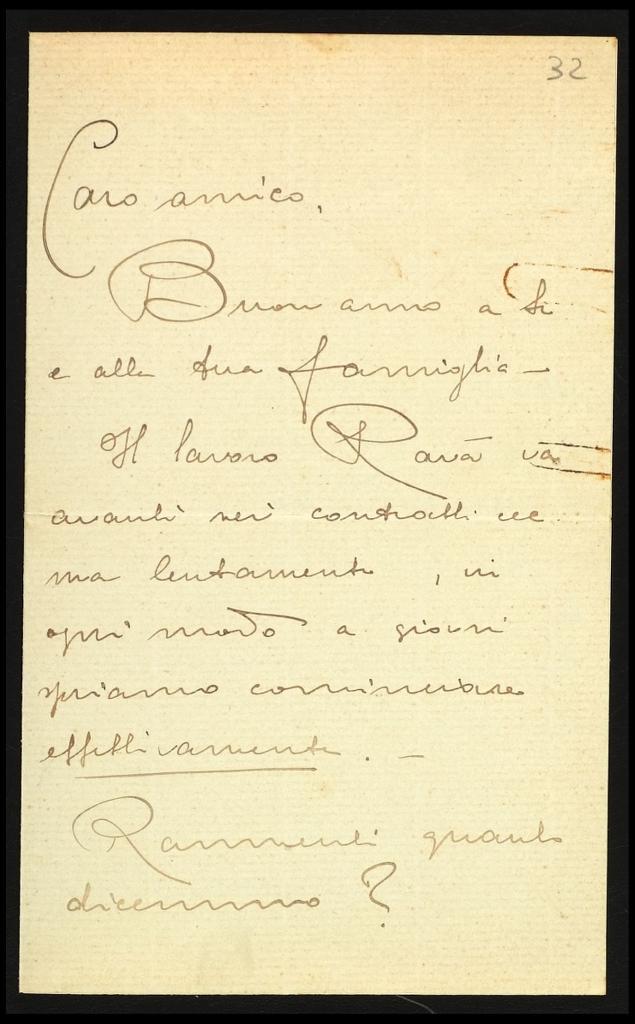 32
Caro amico,
Buon anno a te
e alla tua famiglia —
Il lavoro Ravà va
avanti nei contratti ecc
ma lentamente, in
ogni modo a giorni
speriamo cominciare
effettivamente. —
Rammenti quanto
dicemmo?